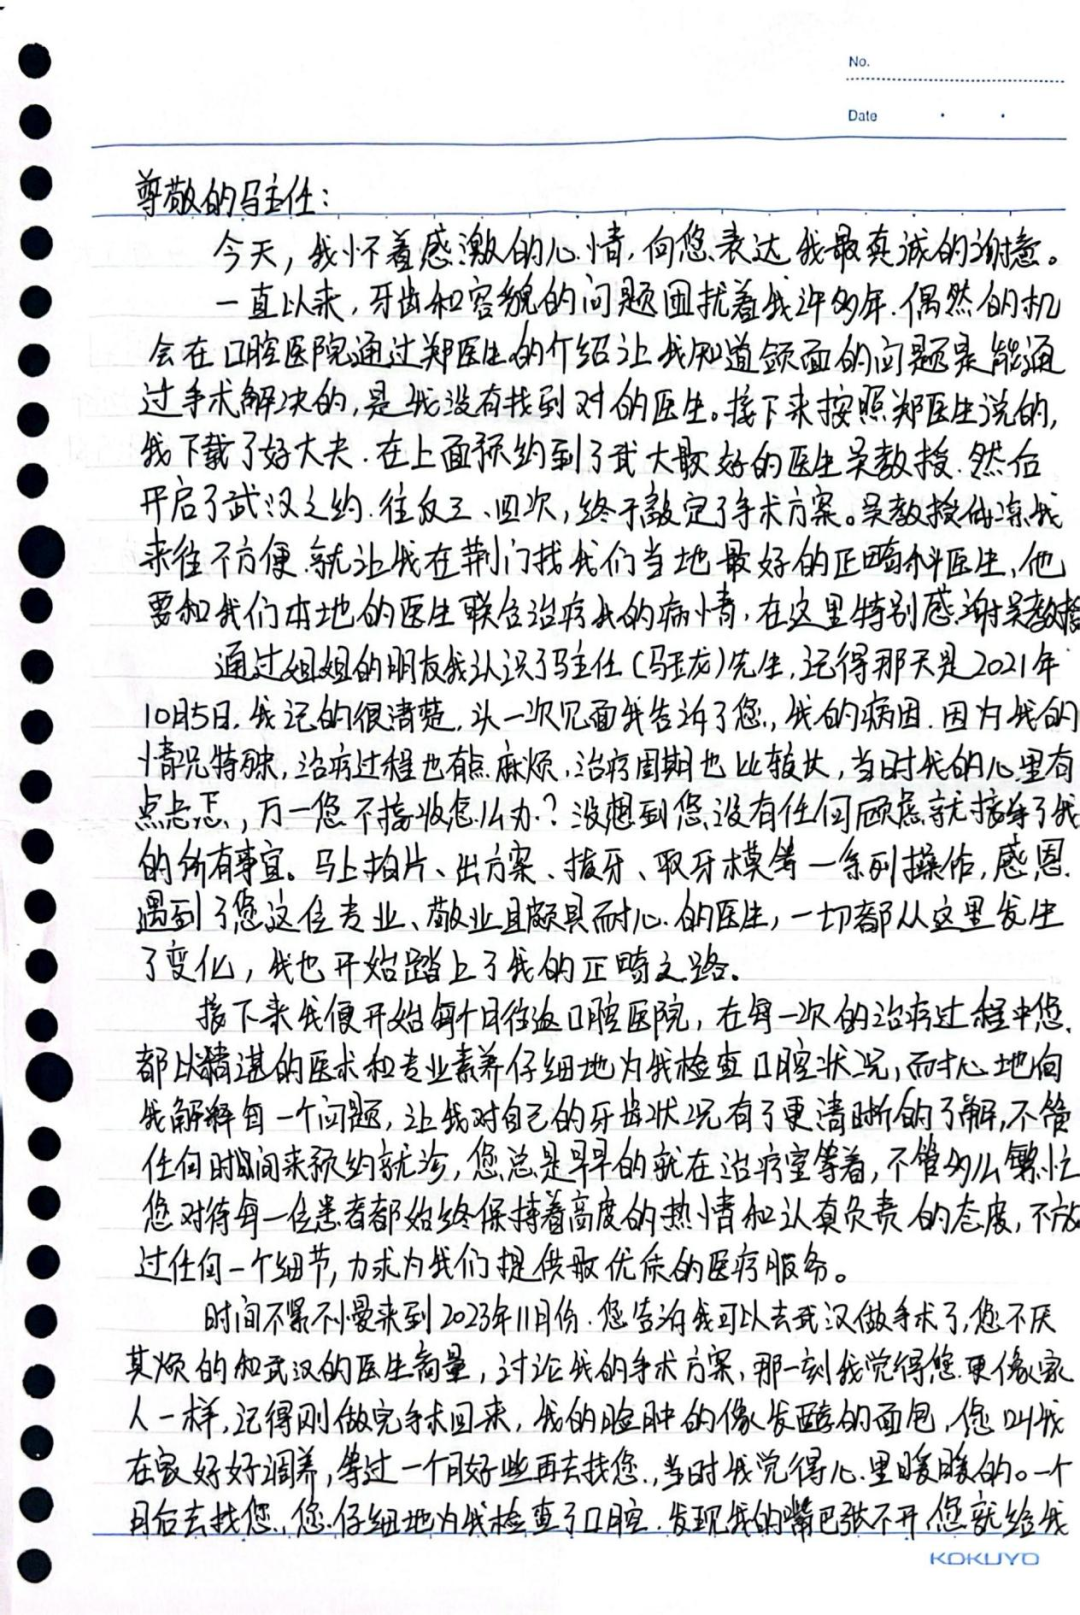 No.
Date
尊敬的马主任：
今天，我怀着感激的心情，向您表达我最真诚的谢意。
一直以来，牙齿和容貌的问题困扰着我许多年.偶然的机
会在口腔医院通过郑医生的介绍让我知道颌面的问题是能通
过手术解决的，是我没有找到对的医生。接下来按照郑医生说的，
我下载了好大夫.在上面预约到了武大最好的医生吴教授.然后
开启了武汉之约.往反三、四次，终于敲定了手术方案。吴教授体谅我
来往不方便.就让我在荆门找我们当地最好的正畸科医生，他
要和我们本地的医生联合治疗我的病情，在这里特别感谢吴教授
通过姐姐的朋友我认识了马主任（马玉龙）先生，记得那天是2021年
10月5日.我记的很清楚，头一次见面我告诉了您，我的病因.因为我的
情况特殊，治疗过程也有点麻烦，治疗周期也比较长，当时我的心里有
点忐忑，万一您不接收怎么办？没想到您没有任何顾虑就接手了我
的所有事宜。马上拍片、出方案、拔牙、取牙模等一系列操作，感恩
遇到了您这位专业、敬业且颇具耐心的医生，一切都从这里发生
了变化，我也开始踏上了我的正畸之路。
接下来我便开始每个月往返口腔医院，在每一次的治疗过程中您
都以精湛的医术和专业素养仔细地为我检查口腔状况，耐心地向
我解释每一个问题，让我对自己的牙齿状况有了更清晰的了解，不管
任何时间来预约就诊，您总是早早的就在治疗室等着，不管多么繁忙
您对待每一位患者都始终保持着高度的热情和认真负责的态度，不放
过任何一个细节，力求为我们提供最优质的医疗服务。
时间不紧不慢来到2023年11月份.您告诉我可以去武汉做手术了，您不厌
其烦的和武汉的医生商量，讨论我的手术方案，那一刻我觉得您更像家
人一样，记得刚做完手术回来，我的脸肿的像发酵的面包，您叫我
在家好好调养，等过一个月好些再去找您，当时我觉得心里暖暖的。一个
月后去找您，您仔细地为我检查了口腔.发现我的嘴巴张不开，您就给我
KOKUYO